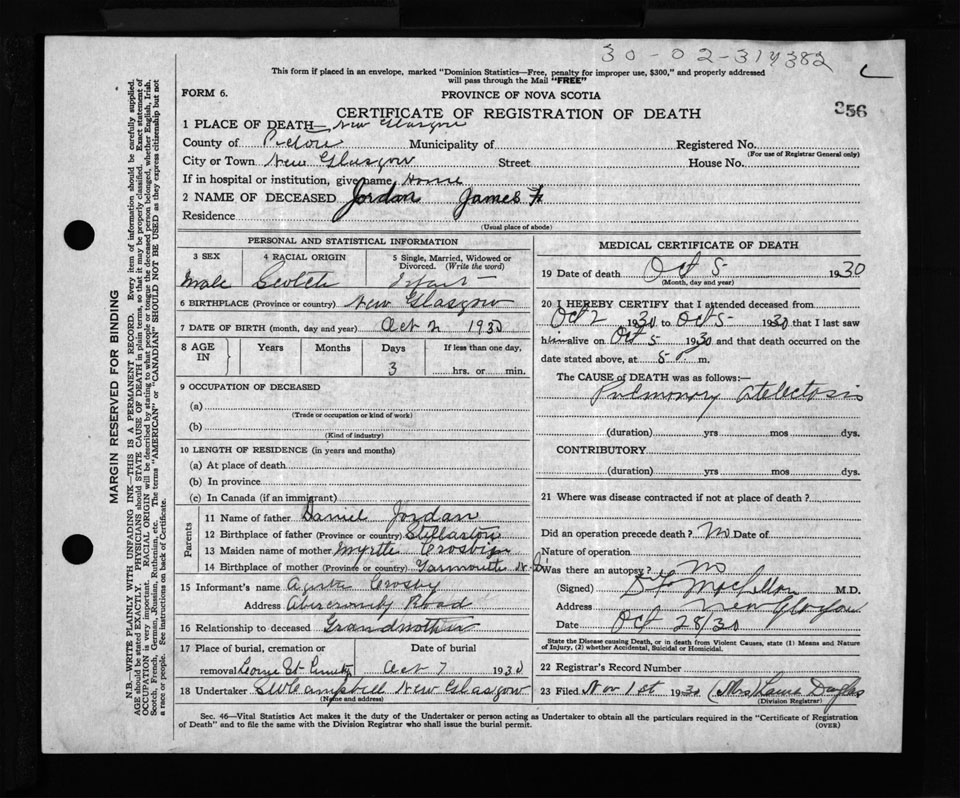 30-02-314382
This form if placed in an envelope, marked "Dominion Statistics—Free, penalty for improper use, $300," and properly addressed
will pass through the Mail "FREE"
FORM 6.
PROVINCE OF NOVA SCOTIA
CERTIFICATE OF REGISTRATION OF DEATH
356
1 PLACE OF DEATH— New Glasgow
County of Pictou Municipality of Registered No.
(For use of Registrar General only)
City or Town New Glasgow Street House No.
If in hospital or institution, give name Home
2 NAME OF DECEASED Jordan James F.
Residence
(Usual place of abode)
PERSONAL AND STATISTICAL INFORMATION
3 SEX 4 RACIAL ORIGIN 5 Single, Married, Widowed or
Divorced. (Write the word)
Male Scotch Infant
6 BIRTHPLACE (Province or country) New Glasgow
7 DATE OF BIRTH (month, day and year) Oct 2 1930
8 AGE IN Years Months Days If less than one day,
3 hrs. or min.
9 OCCUPATION OF DECEASED
(a)
(Trade or occupation or kind of work)
(b)
(Kind of industry)
10 LENGTH OF RESIDENCE (in years and months)
(a) At place of death
(b) In province
(c) In Canada (if an immigrant)
Parents
11 Name of father Daniel Jordan
12 Birthplace of father (Province or country) Stellarton
13 Maiden name of mother Myrtle
14 Birthplace of mother (Province or country) Yarmouth N.S.
15 Informant's name Crosby
Address Abercromby Road
16 Relationship to deceased Grandmother
17 Place of burial, cremation or Date of burial
removal George St. Oct 7 1930
18 Undertaker Campbell New Glasgow
(Name and address)
MEDICAL CERTIFICATE OF DEATH
19 Date of death Oct 5 1930
(Month, day and year)
20 I HEREBY CERTIFY that I attended deceased from
Oct 2 1930 to Oct 5 1930 that I last saw
him alive on Oct 5 1930 and that death occurred on the
date stated above, at 5 P m.
The CAUSE of DEATH was as follows:—
Pulmonary atelectosis
(duration) yrs mos dys.
CONTRIBUTORY
(duration) yrs mos dys.
21 Where was disease contracted if not at place of death?
Did an operation precede death? No Date of
Nature of operation
Was there an autopsy? No
(Signed) M.D.
Address New Glasgow
Date Oct 28/30
State the Disease causing Death, or in death from Violent Causes, state (1) Means and Nature
of Injury, (2) whether Accidental, Suicidal or Homicidal.
22 Registrar's Record Number
23 Filed Nov 1st 1930 (Mrs) Laura Douglas
(Division Registrar)
Sec. 46—Vital Statistics Act makes it the duty of the Undertaker or person acting as Undertaker to obtain all the particulars required in the "Certificate of Registration
of Death" and to file the same with the Division Registrar who shall issue the burial permit.
(OVER)
MARGIN RESERVED FOR BINDING
N.B.—WRITE PLAINLY WITH UNFADING INK—THIS IS A PERMANENT RECORD. Every item of information should be carefully supplied.
AGE should be stated EXACTLY. PHYSICIANS should STATE CAUSE OF DEATH in plain terms, so that it may be properly classified. Exact statement of
OCCUPATION is very important. RACIAL ORIGIN will be described by stating to what people or tongue the deceased person belonged, whether English, Irish,
Scotch, French, German, Russian, Ruthenian, etc. The terms "AMERICAN" or "CANADIAN" SHOULD NOT BE USED as they express citizenship but not
a race or people. See instructions on back of Certificate.